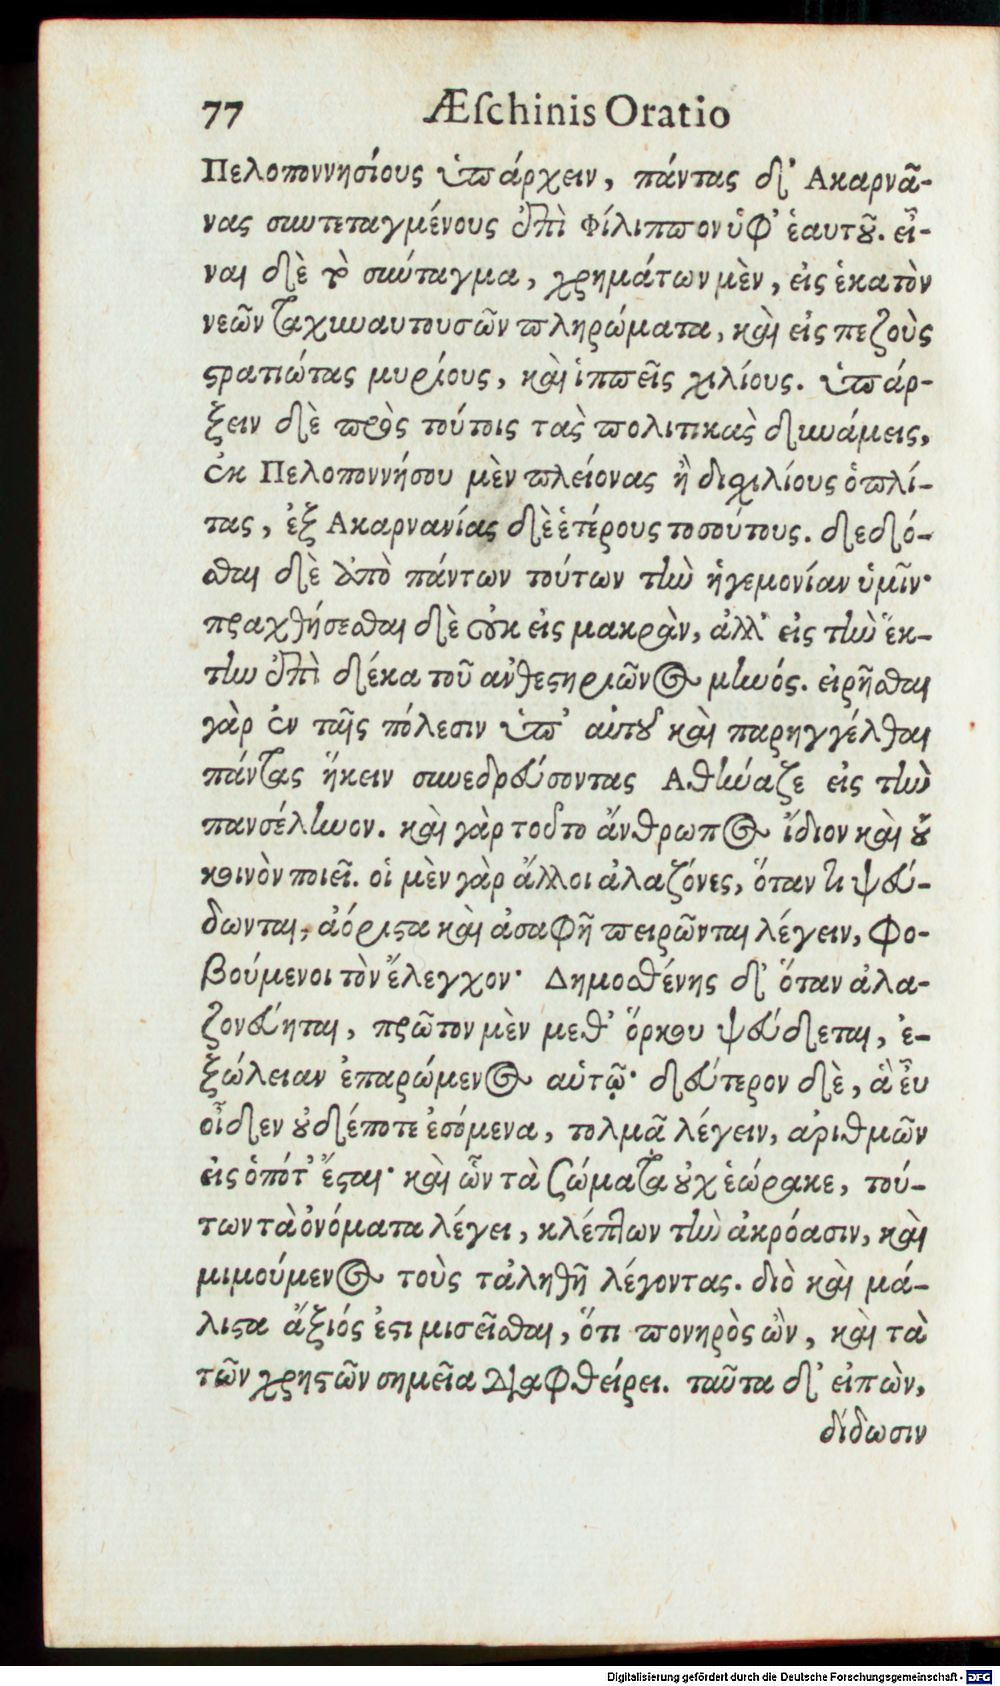 77 Æſchinis Oratio
Πελοποννησίους ὑπάρχειν, πάντας δ' Ακαρνᾶ-
νας συντεταγμένους ἐπὶ Φίλιππον ὑφ' ἑαυτοῦ. εἶ-
ναι δὲ τὸ σύνταγμα, χρημάτων μὲν, εἰς ἑκατὸν
νεῶν ταχυναυτουσῶν πληρώματα, καὶ εἰς πεζοὺς
στρατιώτας μυρίους, καὶ ἱππεῖς χιλίους. ὑπάρ-
ξειν δὲ πρὸς τούτοις τὰς πολιτικὰς δυνάμεις,
ἐκ Πελοποννήσου μὲν πλείονας ἢ διχιλίους ὁπλί-
τας, ἐξ Ακαρνανίας δὲ ἑτέρους τοσούτους. δεδό-
σθαι δὲ ἀπὸ πάντων τούτων τὴν ἡγεμονίαν ὑμῖν·
πραχθήσεσθαι δὲ οὐκ εἰς μακρὰν, ἀλλ' εἰς τὴν ἕκ-
την ἐπὶ δέκα τοῦ ἀνθεστηριῶνος μηνός. εἰρῆσθαι
γὰρ ἐν ταῖς πόλεσιν ὑπ' αὐτοῦ καὶ παρηγγέλθαι
πάντας ἥκειν συνεδρεύσοντας Αθήναζε εἰς τὴν
πανσέληνον. καὶ γὰρ τοῦτο ἄνθρωπος ἴδιον καὶ οὐ
κοινὸν ποιεῖ. οἱ μὲν γὰρ ἄλλοι ἀλαζόνες, ὅταν τι ψεύ-
δωνται, ἀόριστα καὶ ἀσαφῆ πειρῶνται λέγειν, φο-
βούμενοι τὸν ἔλεγχον· Δημοσθένης δ' ὅταν ἀλα-
ζονεύηται, πρῶτον μὲν μεθ' ὅρκου ψεύδεται, ἐ-
ξώλειαν ἐπαρώμενος αὑτῷ· δεύτερον δὲ, ἃ εὖ
οἶδεν οὐδέποτε ἐσόμενα, τολμᾶ λέγειν, ἀριθμῶν
εἰς ὁπότ' ἔσται· καὶ ὧν τὰ σώματα οὐχ ἑώρακε, τού-
των τὰ ὀνόματα λέγει, κλέπτων τὴν ἀκρόασιν, καὶ
μιμούμενος τοὺς τἀληθῆ λέγοντας. διὸ καὶ μά-
λιστα ἄξιός ἐστι μισεῖσθαι, ὅτι πονηρὸς ὢν, καὶ τὰ
τῶν χρηστῶν σημεῖα διαφθείρει. ταῦτα δ' εἰπὼν,
δίδωσιν
Digitalisierung gefördert durch die Deutsche Forschungsgemeinschaft - DFG